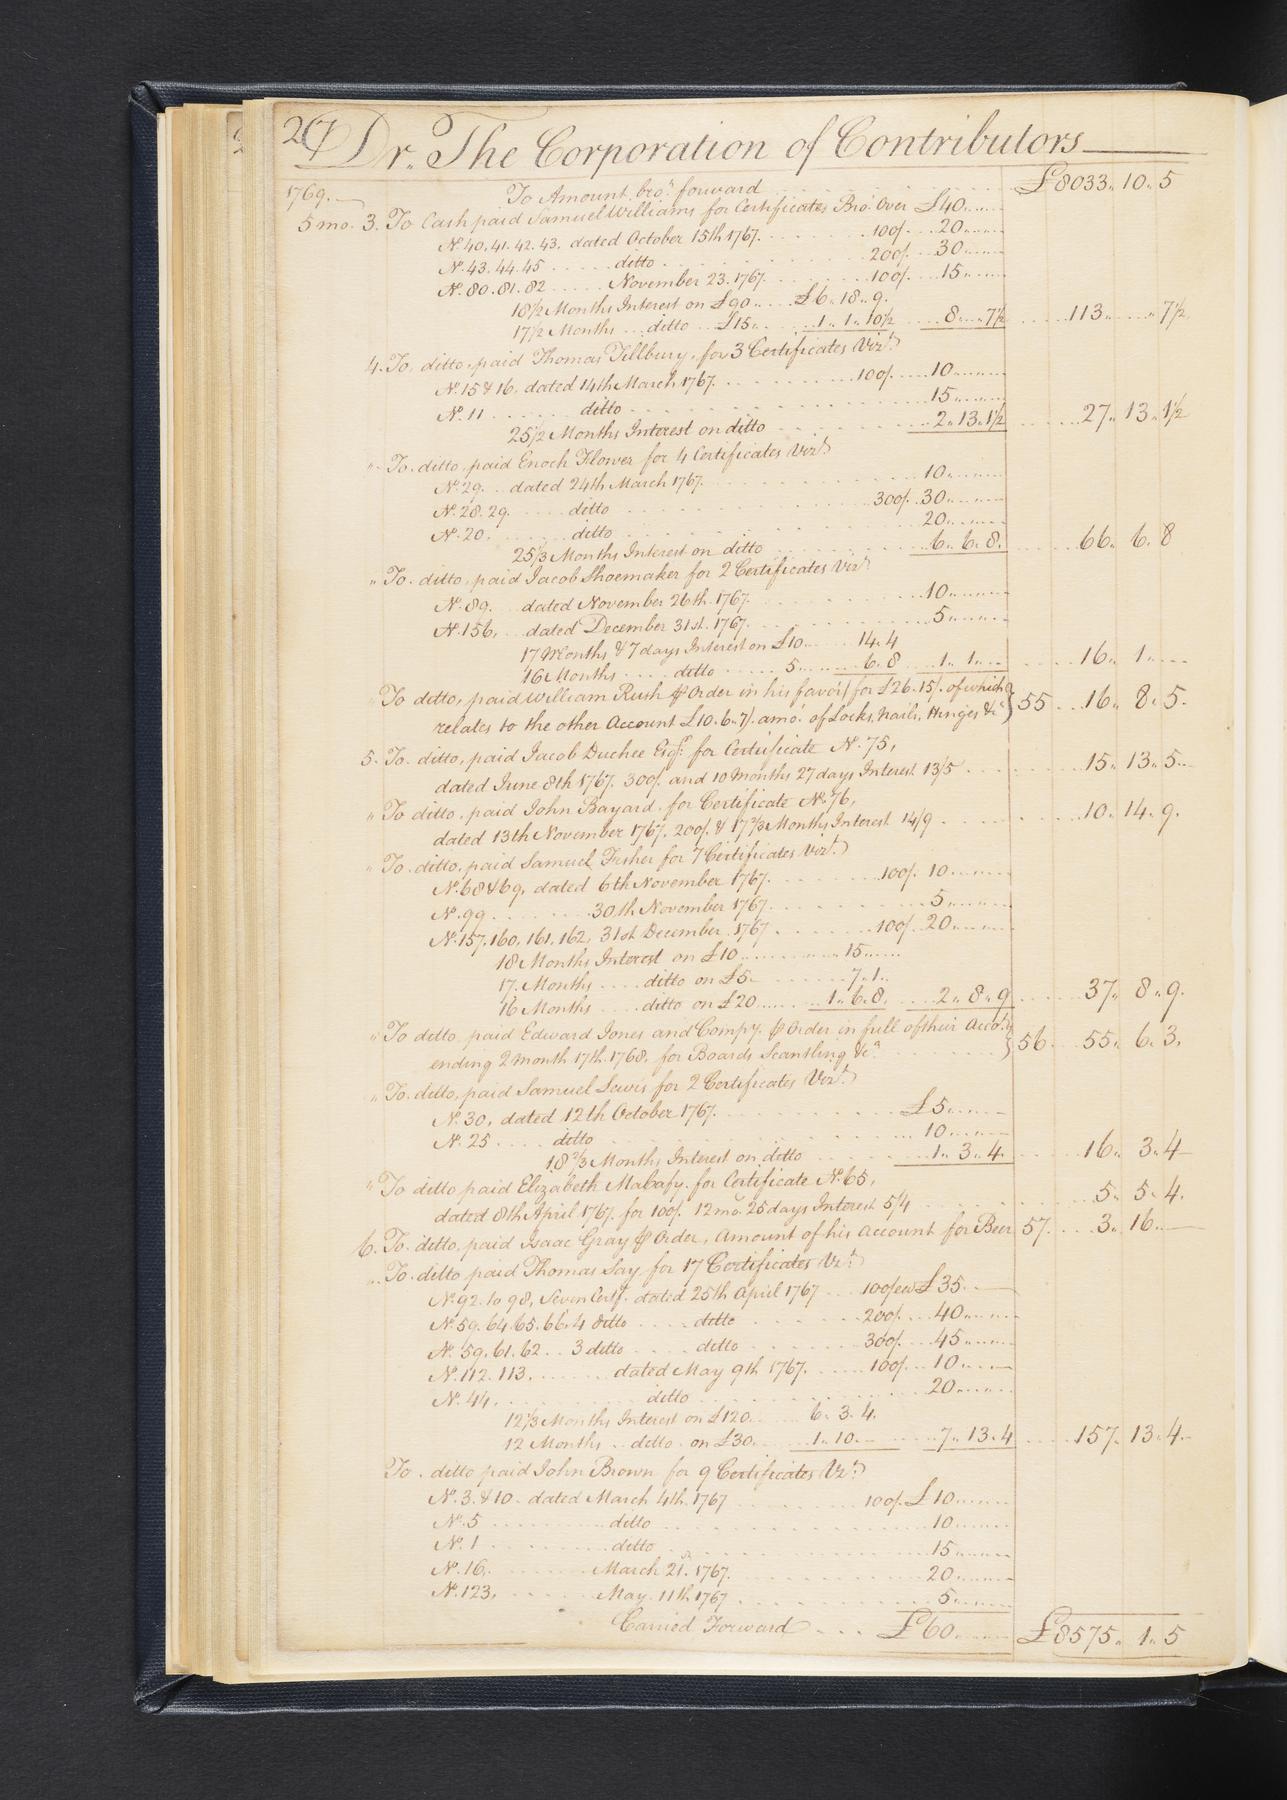 27 Dr. The Corporation of Contributors
1769. To Amount bro.t forward £8033.. 10.. 5
5 mo. 3. To Cash paid Samuel Williams for Certificates Bro.t Over £40
No. 40. 41. 42. 43. dated October 15th 1767. 100/. 20
No. 43. 44. 45 ditto 200/. 30
No. 80. 81. 82 November 23. 1767. 100/. 15
18 1/2 Months Interest on £90 £6.. 18.. 9.
17 1/2 Months ditto £15 1.. 1.. 10 1/2 8.. .. 7 1/2 113.. .. 7 1/2
4. To, ditto, paid Thomas Tillbury, for 3 Certificates Vizt.
No. 15 & 16, dated 14th March 1767. 100/. 10
No. 11 ditto 15
25 1/2 Months Interest on ditto 2.. 13.. 1 1/2 27.. 13.. 1 1/2
" To. ditto, paid Enoch Flower for 4 Certificates Vizt.
No. 29. dated 24th March 1767. 10
No. 28. 29. ditto 300/. 30
No. 20. ditto 20
25 1/3 Months Interest on ditto 6.. 6.. 8. 66.. 6.. 8
" To. ditto, paid Jacob Shoemaker for 2 Certificates Vizt.
No. 89. dated November 26th. 1767. 10
No. 156, dated December 31st. 1767. 5
17 Months & 7 days Interest on £10 14.. 4
16 Months ditto 5 6.. 8 1.. 1.. 16.. 1..
" To ditto, paid William Rush ⅌ Order in his favor for £26.. 15/. of which
relates to the other Account £10.. 6.. 7/. amo.t of Locks, Nails, Hinges &c. } 55 16.. 8.. 5.
5. To. ditto, paid Jacob Duchee Esqr. for Certificate No. 75,
dated June 8th 1767. 300/. and 10 Months 27 days Interest 13/5 15.. 13.. 5
" To ditto, paid John Bayard, for Certificate No. 76,
dated 13th November 1767. 200/. & 17 2/3 Months Interest 14/9 10.. 14.. 9.
" To. ditto, paid Samuel Fisher for 7 Certificates Vizt.
No. 68 & 69, dated 6th November 1767. 100/. 10
No. 99 30th November 1767. 5
No. 157. 160, 161, 162, 31st December 1767 100/. 20
18 Months Interest on £10 15
17. Months ditto on £5. 7.. 1..
16 Months ditto on £20 1.. 6.. 8. 2.. 8.. 9 37.. 8.. 9.
" To ditto, paid Edward Jones and Compy. ⅌ Order in full of their Accot.
ending 2 month 17th. 1768, for Boards Scantling &c. } 56 55.. 6.. 3.
" To. ditto, paid Samuel Lewis for 2 Certificates Vizt.
No. 30, dated 12th October 1767. £5
No. 25 ditto 10
18 2/3 Months Interest on ditto 1.. 3.. 4. 16.. 3.. 4
" To ditto paid Elizabeth Mahafy. for Certificate No. 65,
dated 8th April 1767. for 100/. 12 mo. 25 days Interest 5/4 5.. 5.. 4.
6. To. ditto, paid Isaac Gray ⅌ Order, Amount of his Account for Beer 57. 3.. 16
" To. ditto paid Thomas Say for 17 Certificates Vizt.
No. 92. to 98, Seven Certf. dated 25th April 1767 100/ ea £35
No. 59. 64. 65. 66. 4 ditto ditto 200/. 40
No. 59. 61. 62. 3 ditto ditto 300/. 45
No. 112. 113. dated May 9th 1767. 100/. 10
No. 44. ditto 20
12 1/3 Months Interest on £120. 6.. 3.. 4.
12 Months ditto on £30. 1.. 10. 7.. 13.. 4 157. 13.. 4
To. ditto paid John Brown for 9 Certificates Vizt.
No. 3. & 10. dated March 4th. 1767 100/. £10
No. 5 ditto 10
No. 1 ditto 15
No. 16. March 21st. 1767. 20
No. 123, May. 11th 1767 5
Carried Forward £60 £8575.. 1.. 5